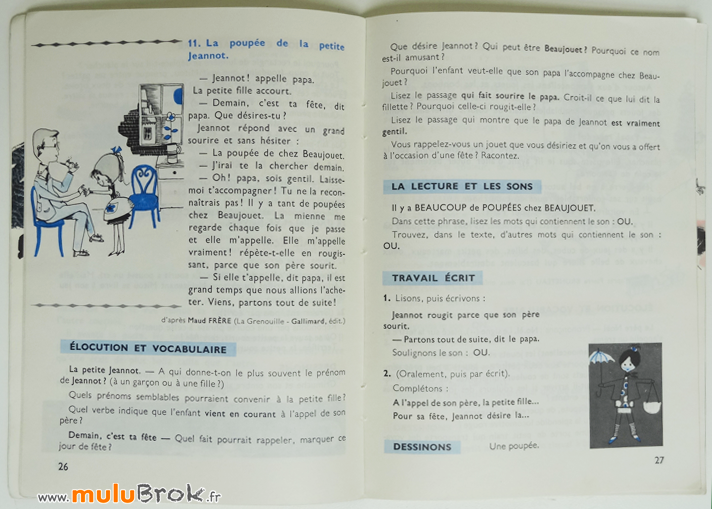 11. La poupée de la petite
Jeannot.
— Jeannot! appelle papa.
La petite fille accourt.
— Demain, c'est ta fête, dit
papa. Que désires-tu?
Jeannot répond avec un grand
sourire et sans hésiter :
— La poupée de chez Beaujouet.
— J'irai te la chercher demain.
— Oh! papa, sois gentil. Laisse-
moi t'accompagner! Tu ne la recon-
naîtrais pas! Il y a tant de poupées
chez Beaujouet. La mienne me
regarde chaque fois que je passe
et elle m'appelle. Elle m'appelle
vraiment! répète-t-elle en rougis-
sant, parce que son père sourit.
— Si elle t'appelle, dit papa, il est
grand temps que nous allions l'ache-
ter. Viens, partons tout de suite!
d'après Maud FRÈRE (La Grenouille - Gallimard, édit.)
ÉLOCUTION ET VOCABULAIRE
La petite Jeannot. — A qui donne-t-on le plus souvent le prénom
de Jeannot? (à un garçon ou à une fille?)
Quels prénoms semblables pourraient convenir à la petite fille?
Quel verbe indique que l'enfant vient en courant à l'appel de son
père?
Demain, c'est ta fête — Quel fait pourrait rappeler, marquer ce
jour de fête?
26
www.muluBrok.fr
Que désire Jeannot? Qui peut être Beaujouet? Pourquoi ce nom
est-il amusant?
Pourquoi l'enfant veut-elle que son papa l'accompagne chez Beau-
jouet?
Lisez le passage qui fait sourire le papa. Croit-il ce que lui dit la
fillette? Pourquoi celle-ci rougit-elle?
Lisez le passage qui montre que le papa de Jeannot est vraiment
gentil.
Vous rappelez-vous un jouet que vous désiriez et qu'on vous a offert
à l'occasion d'une fête? Racontez.
LA LECTURE ET LES SONS
Il y a BEAUCOUP de POUPÉES chez BEAUJOUET.
Dans cette phrase, lisez les mots qui contiennent le son : OU.
Trouvez, dans le texte, d'autres mots qui contiennent le son :
OU.
TRAVAIL ÉCRIT
1. Lisons, puis écrivons :
Jeannot rougit parce que son père
sourit.
— Partons tout de suite, dit le papa.
Soulignons le son : OU.
2. (Oralement, puis par écrit).
Complétons :
A l'appel de son père, la petite fille...
Pour sa fête, Jeannot désire la...
DESSINONS Une poupée.
27